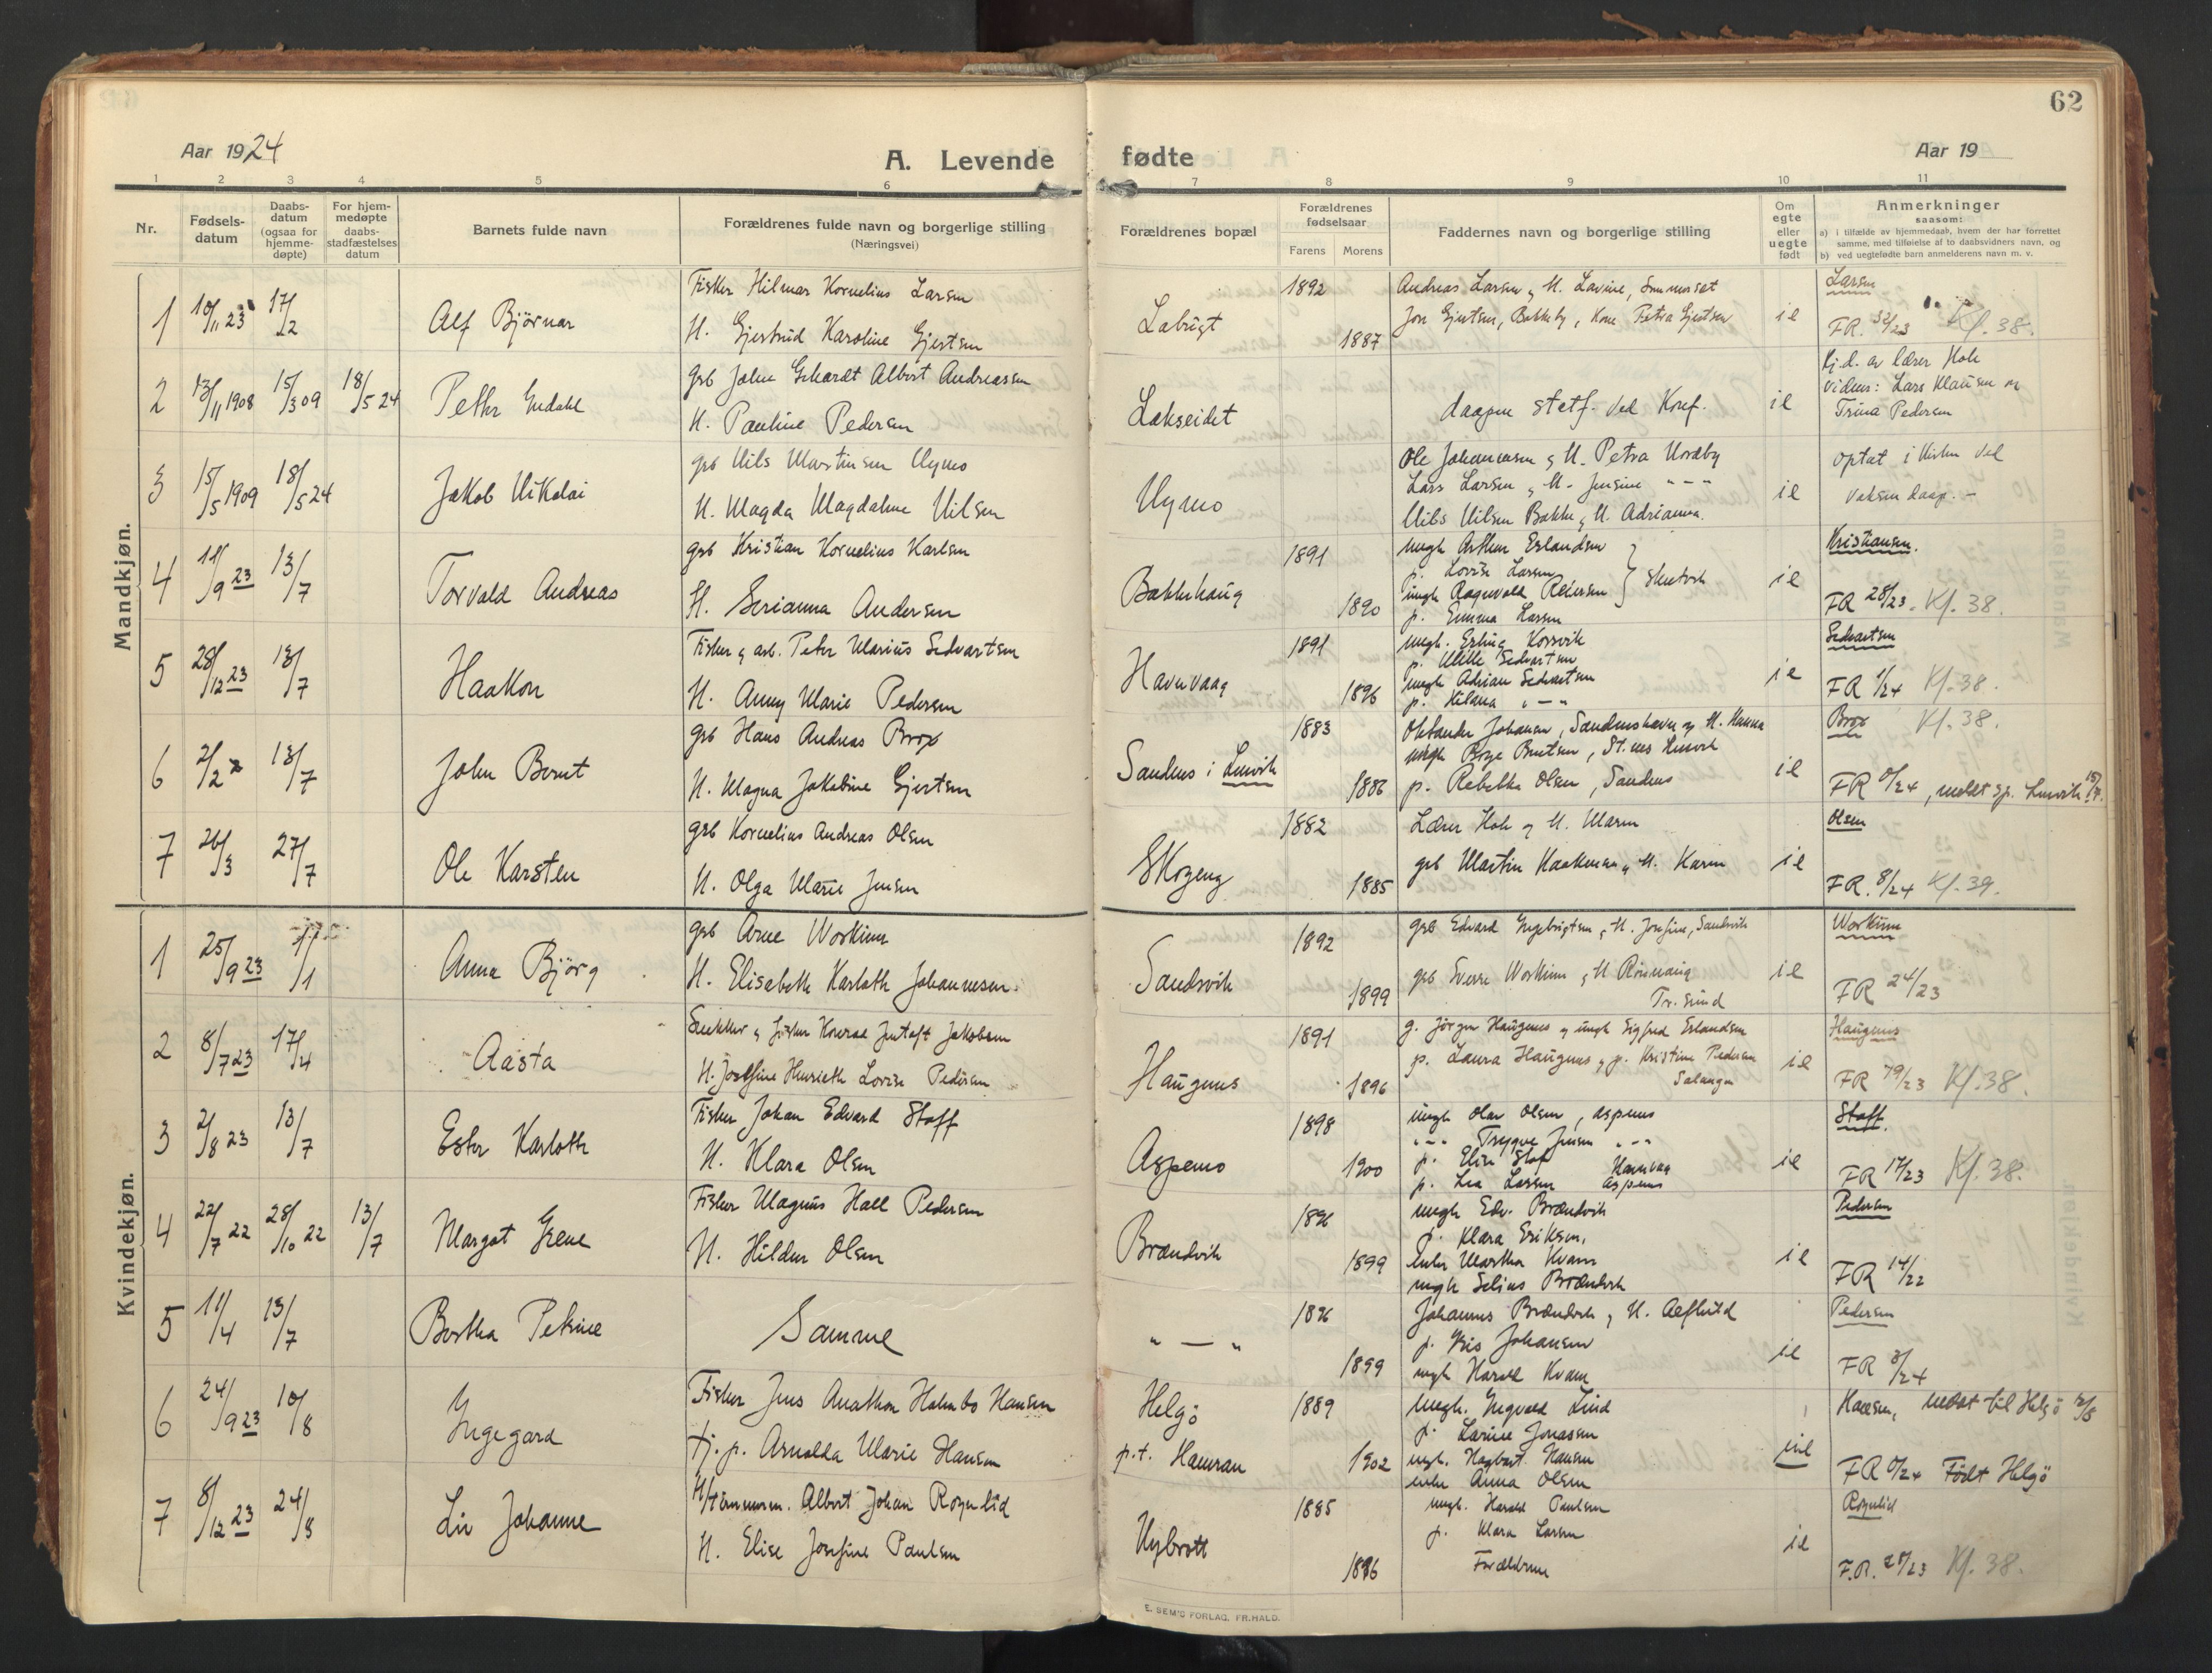 62
Aar 1924
A. Levende fødte
Aar 19
1 2 3 4 5 6 7 8 9 10 11
Nr.
Fødsels-
datum
Daabs-
datum
(ogsaa for
hjemme-
døpte)
For hjem-
medøpte
daabs-
stadfæstelses
datum
Barnets fulde navn
Forældrenes fulde navn og borgerlige stilling
(Næringsvei)
Forældrenes bopæl
Forældrenes
fødselsaar
Farens Morens
Faddernes navn og borgerlige stilling
Om
egte
eller
uegte
født
Anmerkninger
saasom:
a) i tilfælde av hjemmedaab, hvem der har forrettet
samme, med tilføielse af to daabsvidners navn, og
b) ved uegtefødte barn anmelderens navn m. v.
Mandkjøn.
1 10/11 23 17/2 Alf Bjørnar
Fisker Hilmar Kornelius Larsen
H. Gjertrud Karoline Gjertsen
Labugt 1892 1887
Andreas Larsen og H. Lavine,
Jon Gjertsen, Bakkeby, Kone Petra Gjertsen
ie
Larsen
FR. 32/23 Kf. 38.
2 13/11 1908 15/3 09 18/5 24 Petter Endahl
grb Johan Gehardt Albert Andreassen
H. Pauline Pedersen
Lakseidet
daapen stetf. ved Konf.
ie
Hj.d. av lærer Hole
vidner: Lars Klausen og
Trina Pedersen
3 15/5 1909 18/5 24 Jakob Nikolai
grb Nils Martinsen Nymo
H. Magda Magdalene Nilsen
Nymo
Ole Johannesen og H. Petra Nordby
Lars Larsen og H. Jensine " — "
Nils Nilsen Bakke og H. Adrianna.
ie
optat i Kirken ved
voksen daap. –
4 11/9 23 13/7 Torvald Andreas
grb Kristian Kornelius Karlsen
H. Serianna Andersen
Bakkehaug 1891 1890
ungk Arthur Erlandsen
p. Lovise Larsen
ungk Ragnvald Pedersen
p. Emma Larsen
ie
Kristiansen.
FR 28/23. Kf. 38.
5 28/12 23 13/7 Haakon
Fisker og arb. Peter Marius Sedvartsen
H. Anny Marie Pedersen
Havnvaag 1891 1896
ungk. Erling Korsvik
p. Mille Sedvartsen
ungk Adrian Sedvartsen
p. Hilana " — "
ie
Sedvartsen
FR 1/24 Kf. 38.
6 2/2 13/7 John Bernt
grb Hans Andreas Brox
H. Magna Jakobine Gjertsen
Sandnes i Lenvik 1883 1886
Johansen, Sandneshavn og H. Hanna
ungk Borge Berntsen,
p. Rebekka Olsen, Sandnes
ie
Brox Kf. 38.
FR 0/24, meldt sp. Lenvik 15/7.
7 26/3 27/7 Ole Karsten
grb Kornelius Andreas Olsen
H. Olga Marie Jensen
Skogeng 1882 1885
Lærer Hole og H. Maren
grb Martin Haakensen og H. Karen
ie
Olsen
FR. 8/24 Kf. 39.
Kvindekjøn.
1 25/9 23 1/1 Anna Bjørg
grb Arne Workinn
H. Elisabeth Karloth Johannesen.
Sandsvik 1892 1899
grb Edvard Ingebrigtsen og H. Josefine, Sandsvik
grb Sverre Workinn og H Rønnaug
Tr. sund
ie
Workinn
FR 24/23
2 8/7 23 17/4 Aasta
Snekker og fisker Konrad Jentoft Jakobsen
H. Josefine Henriette Lovise Pedersen
Haugnes 1891 1896
g. Jørgen Haugnes og ungk Sigfred Erlandsen
p. Laura Haugnes og p. Kristine Pedersen
Salangen
ie
Haugnes
FR 19/23 Kf. 38.
3 2/8 23 13/7 Ester Karloth
Fisker Johan Edvard Stoff
H. Klara Olsen
Aspenes 1898 1900
ungk Olav Olsen, Aspenes
" — " Trygve Jensen " — "
p. Elise Stoff Havnvaag
p. Lea Larsen Aspenes
ie
Stoff.
FR 17/23 Kf. 38.
4 22/7 22 28/10 22 13/7 Margot Irene
Fisker Magnus Hall Pedersen
H. Hildur Olsen
Brændvik 1896 1899
ungk Edv. Brændvik
p. Klara Eriksen.
enke Martha Kvam
ungk Selius Brændvik
ie
Pedersen
FR 14/22
5 11/4 13/7 Bertha Petrine
Samme
" — " 1896 1899
Johannes Brændvik og H. Alfhild
p. Iris Johansen
ungk Harald Kvam
ie
Pedersen
FR 3/24
6 24/9 23 10/8 Ingegard
Fisker Jens Anathon Holmbo Hansen
tj. p. Arnolda Marie Hansen
Helgø
p.t. Hamran 1889 1902
ungk. Ingvald Lind
p. Larine Jonassen
ungk. Hagbart Hansen
enke Anna Olsen
ue
Hansen, meldt til Helgø 12/8
FR 0/24 Født Helgø
7 8/12 23 24/8 Liv Johanne
Albert Johan Rognlid
H. Elise Josefine Paulsen
Nybrott 1885 1896
ungk. Harald Paulsen
p. Klara Larsen
Forældrene
ie
Rognlid
F.R. 27/23 Kf. 38.
E. SEM'S FORLAG, FR.HALD.